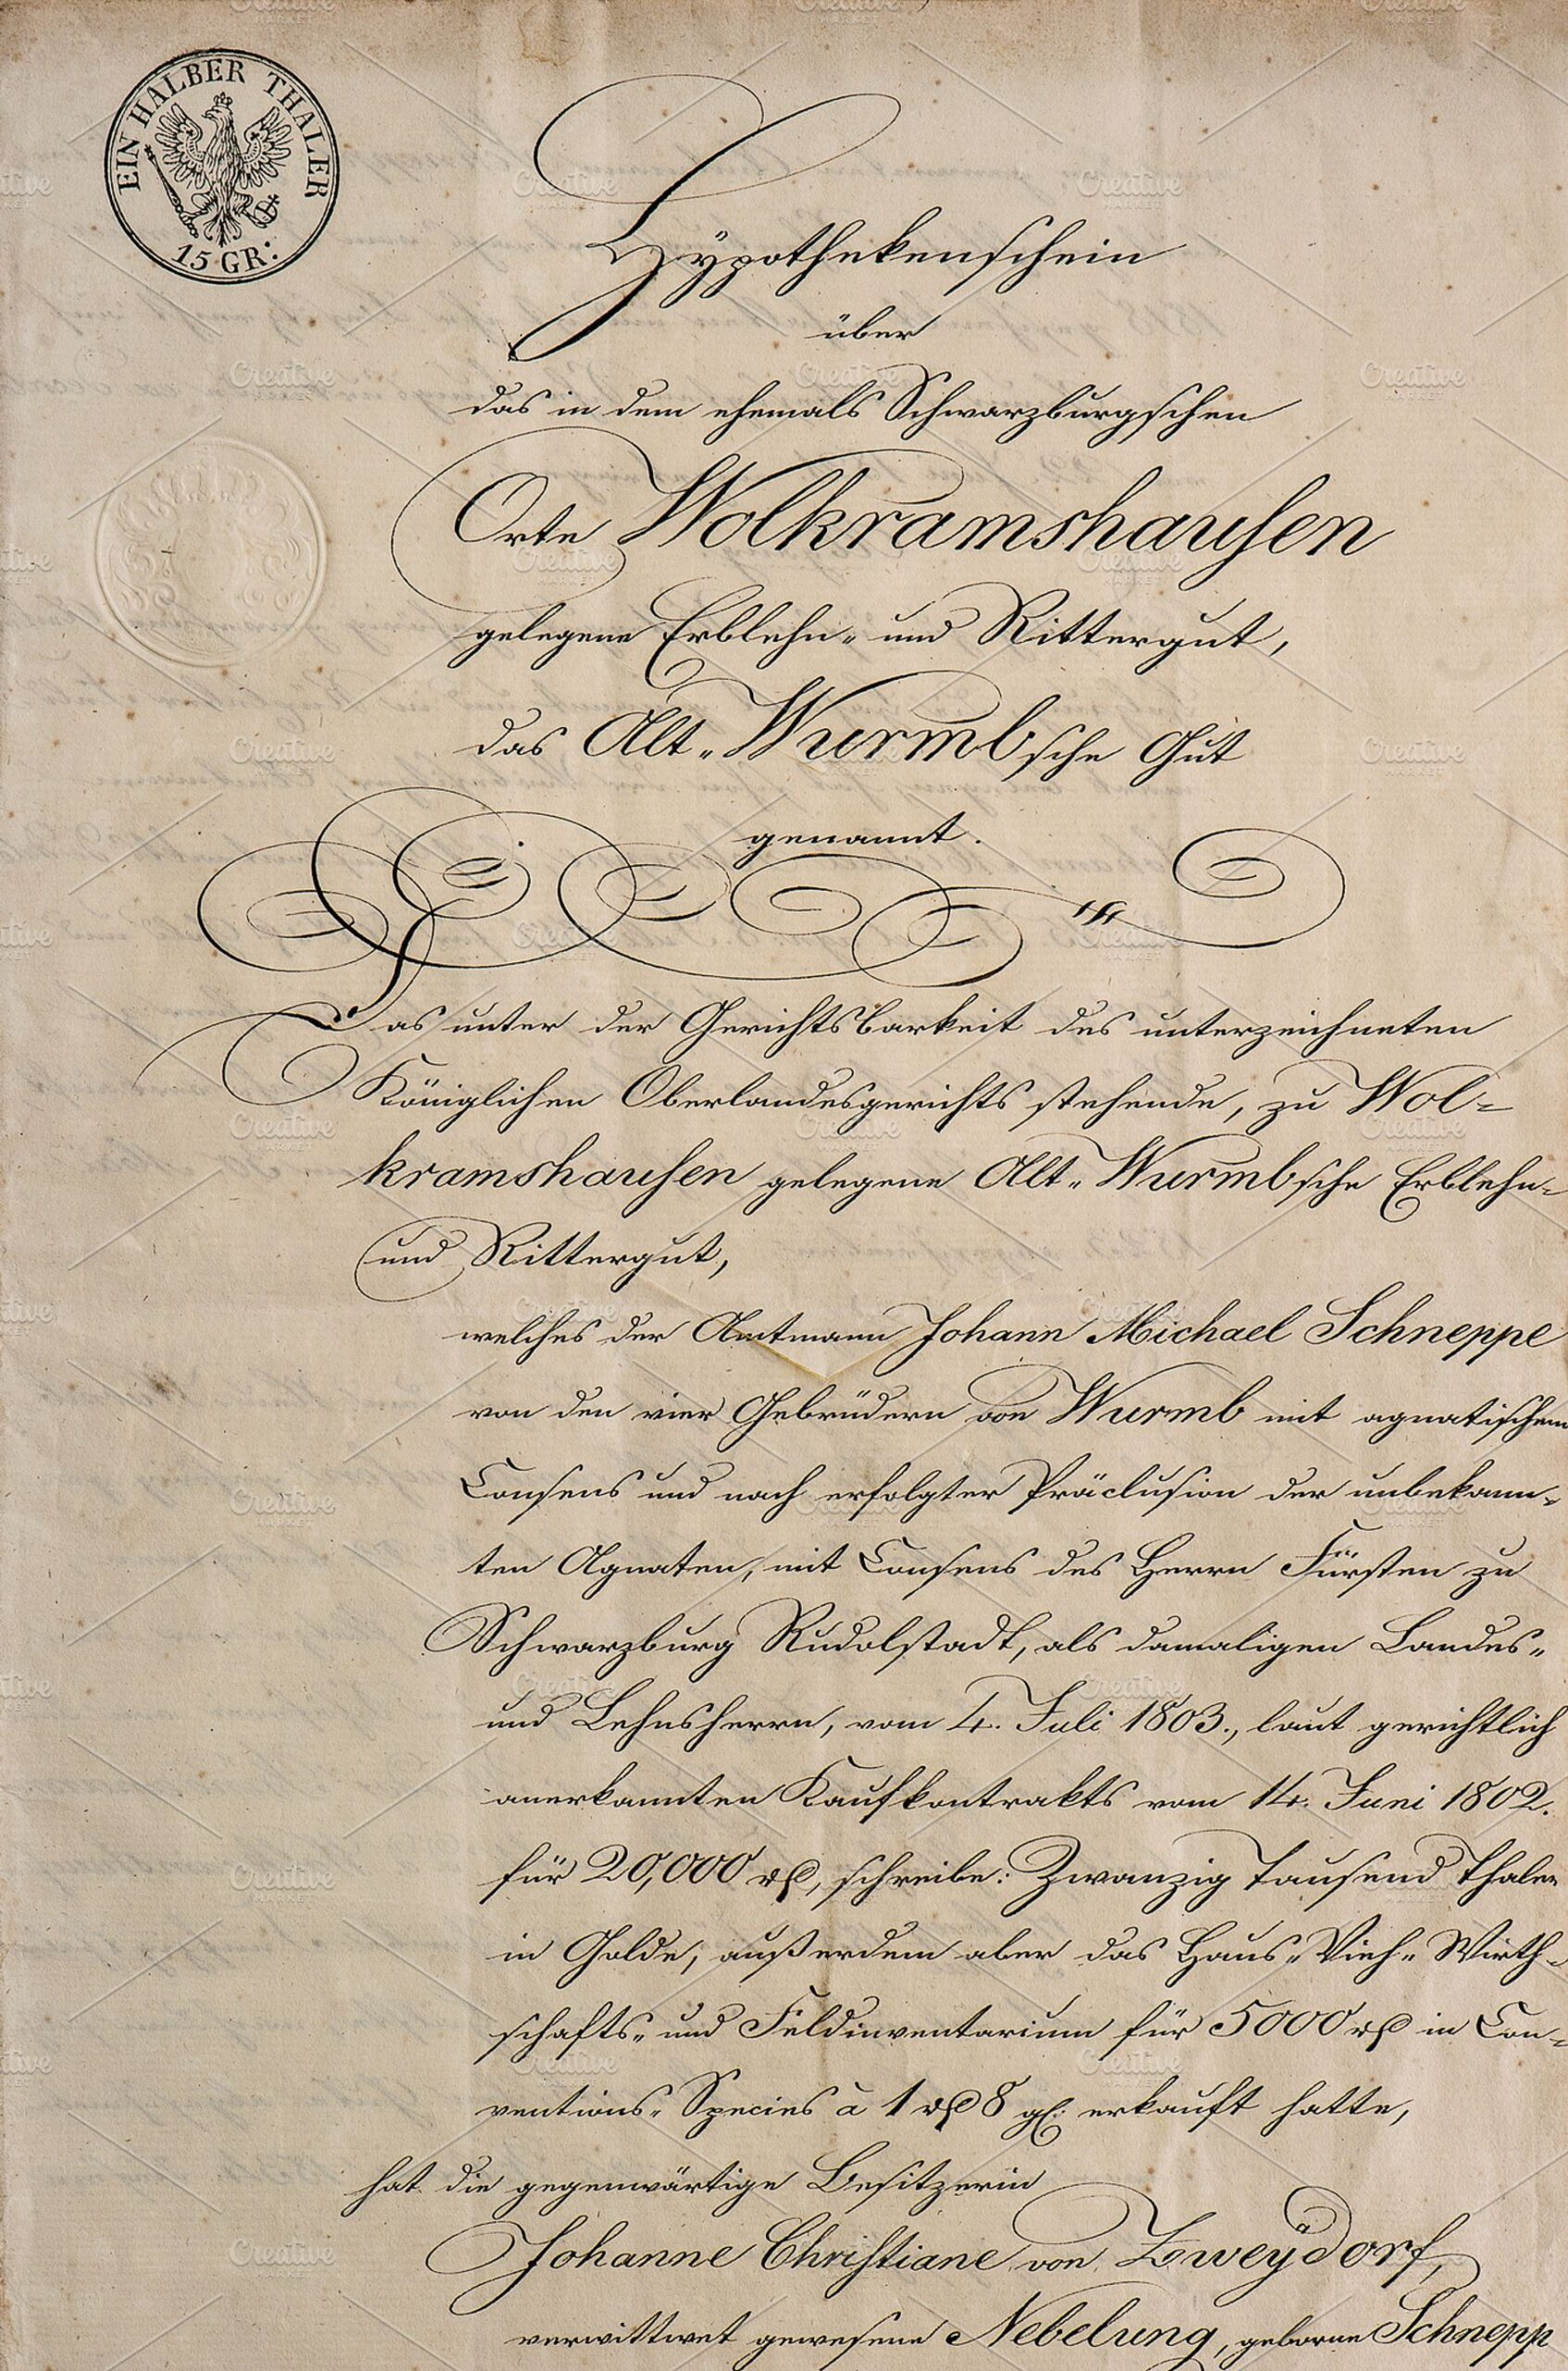 EIN HALBER THALER
15 GR:
Hypothekenschein
über
das in dem ehemals Schwarzburgschen
Orte Wolkramshausen
gelegene Erblehn- und Rittergut,
das Alt-Wurmbsche Gut
genannt.
Das unter der Gerichtsbarkeit des unterzeichneten
Königlichen Oberlandesgerichts stehende, zu Wol=
kramshausen gelegene Alt-Wurmbsche Erblehn=
und Rittergut,
welches der Amtmann Johann Michael Schneppe
von den vier Gebrüdern von Wurmb mit agnatischem
Consens und nach erfolgter Präclusion der unbekann=
ten Agnaten, mit Consens des Herrn Fürsten zu
Schwarzburg Rudolstadt, als damaligen Landes-
und Lehnsherrn, vom 4. Juli 1803., laut gerichtlich
anerkannten Kaufkontrakts vom 14. Juni 1802.
für 20,000 rℓ, schreibe: Zwanzig Tausend Thaler
in Golde, außerdem aber das Haus- Vieh- Wirth=
schafts- und Feldinventarium für 5000 rℓ in Con=
ventions- Species à 1 rℓ 8 gl: erkauft hatte,
hat die gegenwärtige Besitzerin
Johanne Christiane von Zweydorf,
verwittwet gewesene Nebelung, geborne Schnepp